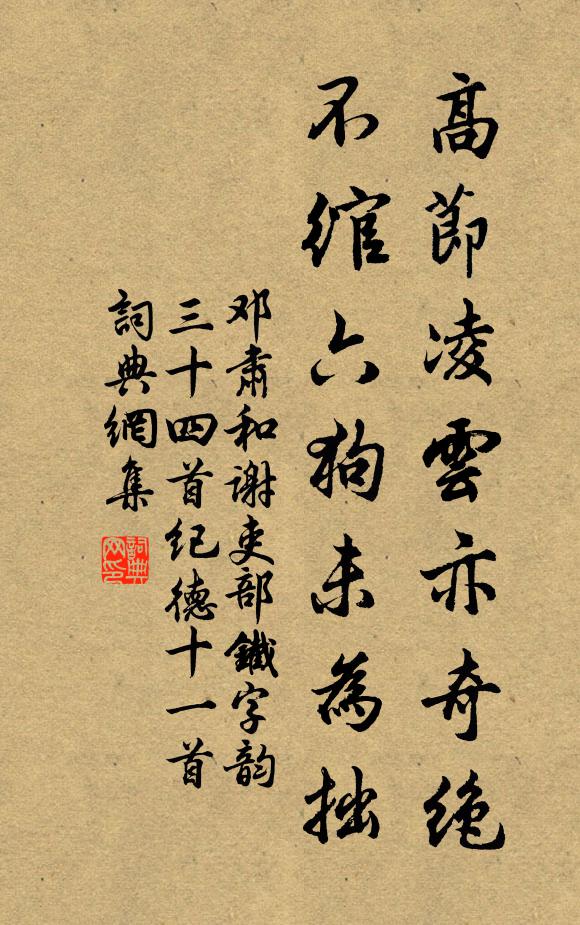 高節凌雲亦奇絶
不綰六狗未為拙
邓肅和谢吏部鐵字韵
三十四首纪德十一首
詞典網集
詞典网印